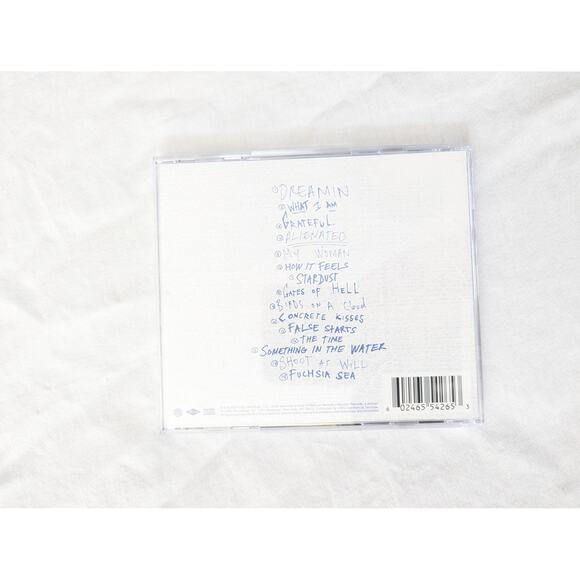 ① DREAMIN
② WHAT I AM
③ GRATEFUL
④ ALIENATED
⑤ MY WOMAN
⑥ HOW IT FEELS
⑦ STARDUST
⑧ GATES OF HELL
⑨ BIRDS ON A Cloud
⑩ CONCRETE KISSES
⑪ FALSE STARTS
⑫ THE TIME
⑬ SOMETHING IN THE WATER
⑭ SHOOT AT WiLL
⑮ FUCHSIA SEA
6 02465 54265 3